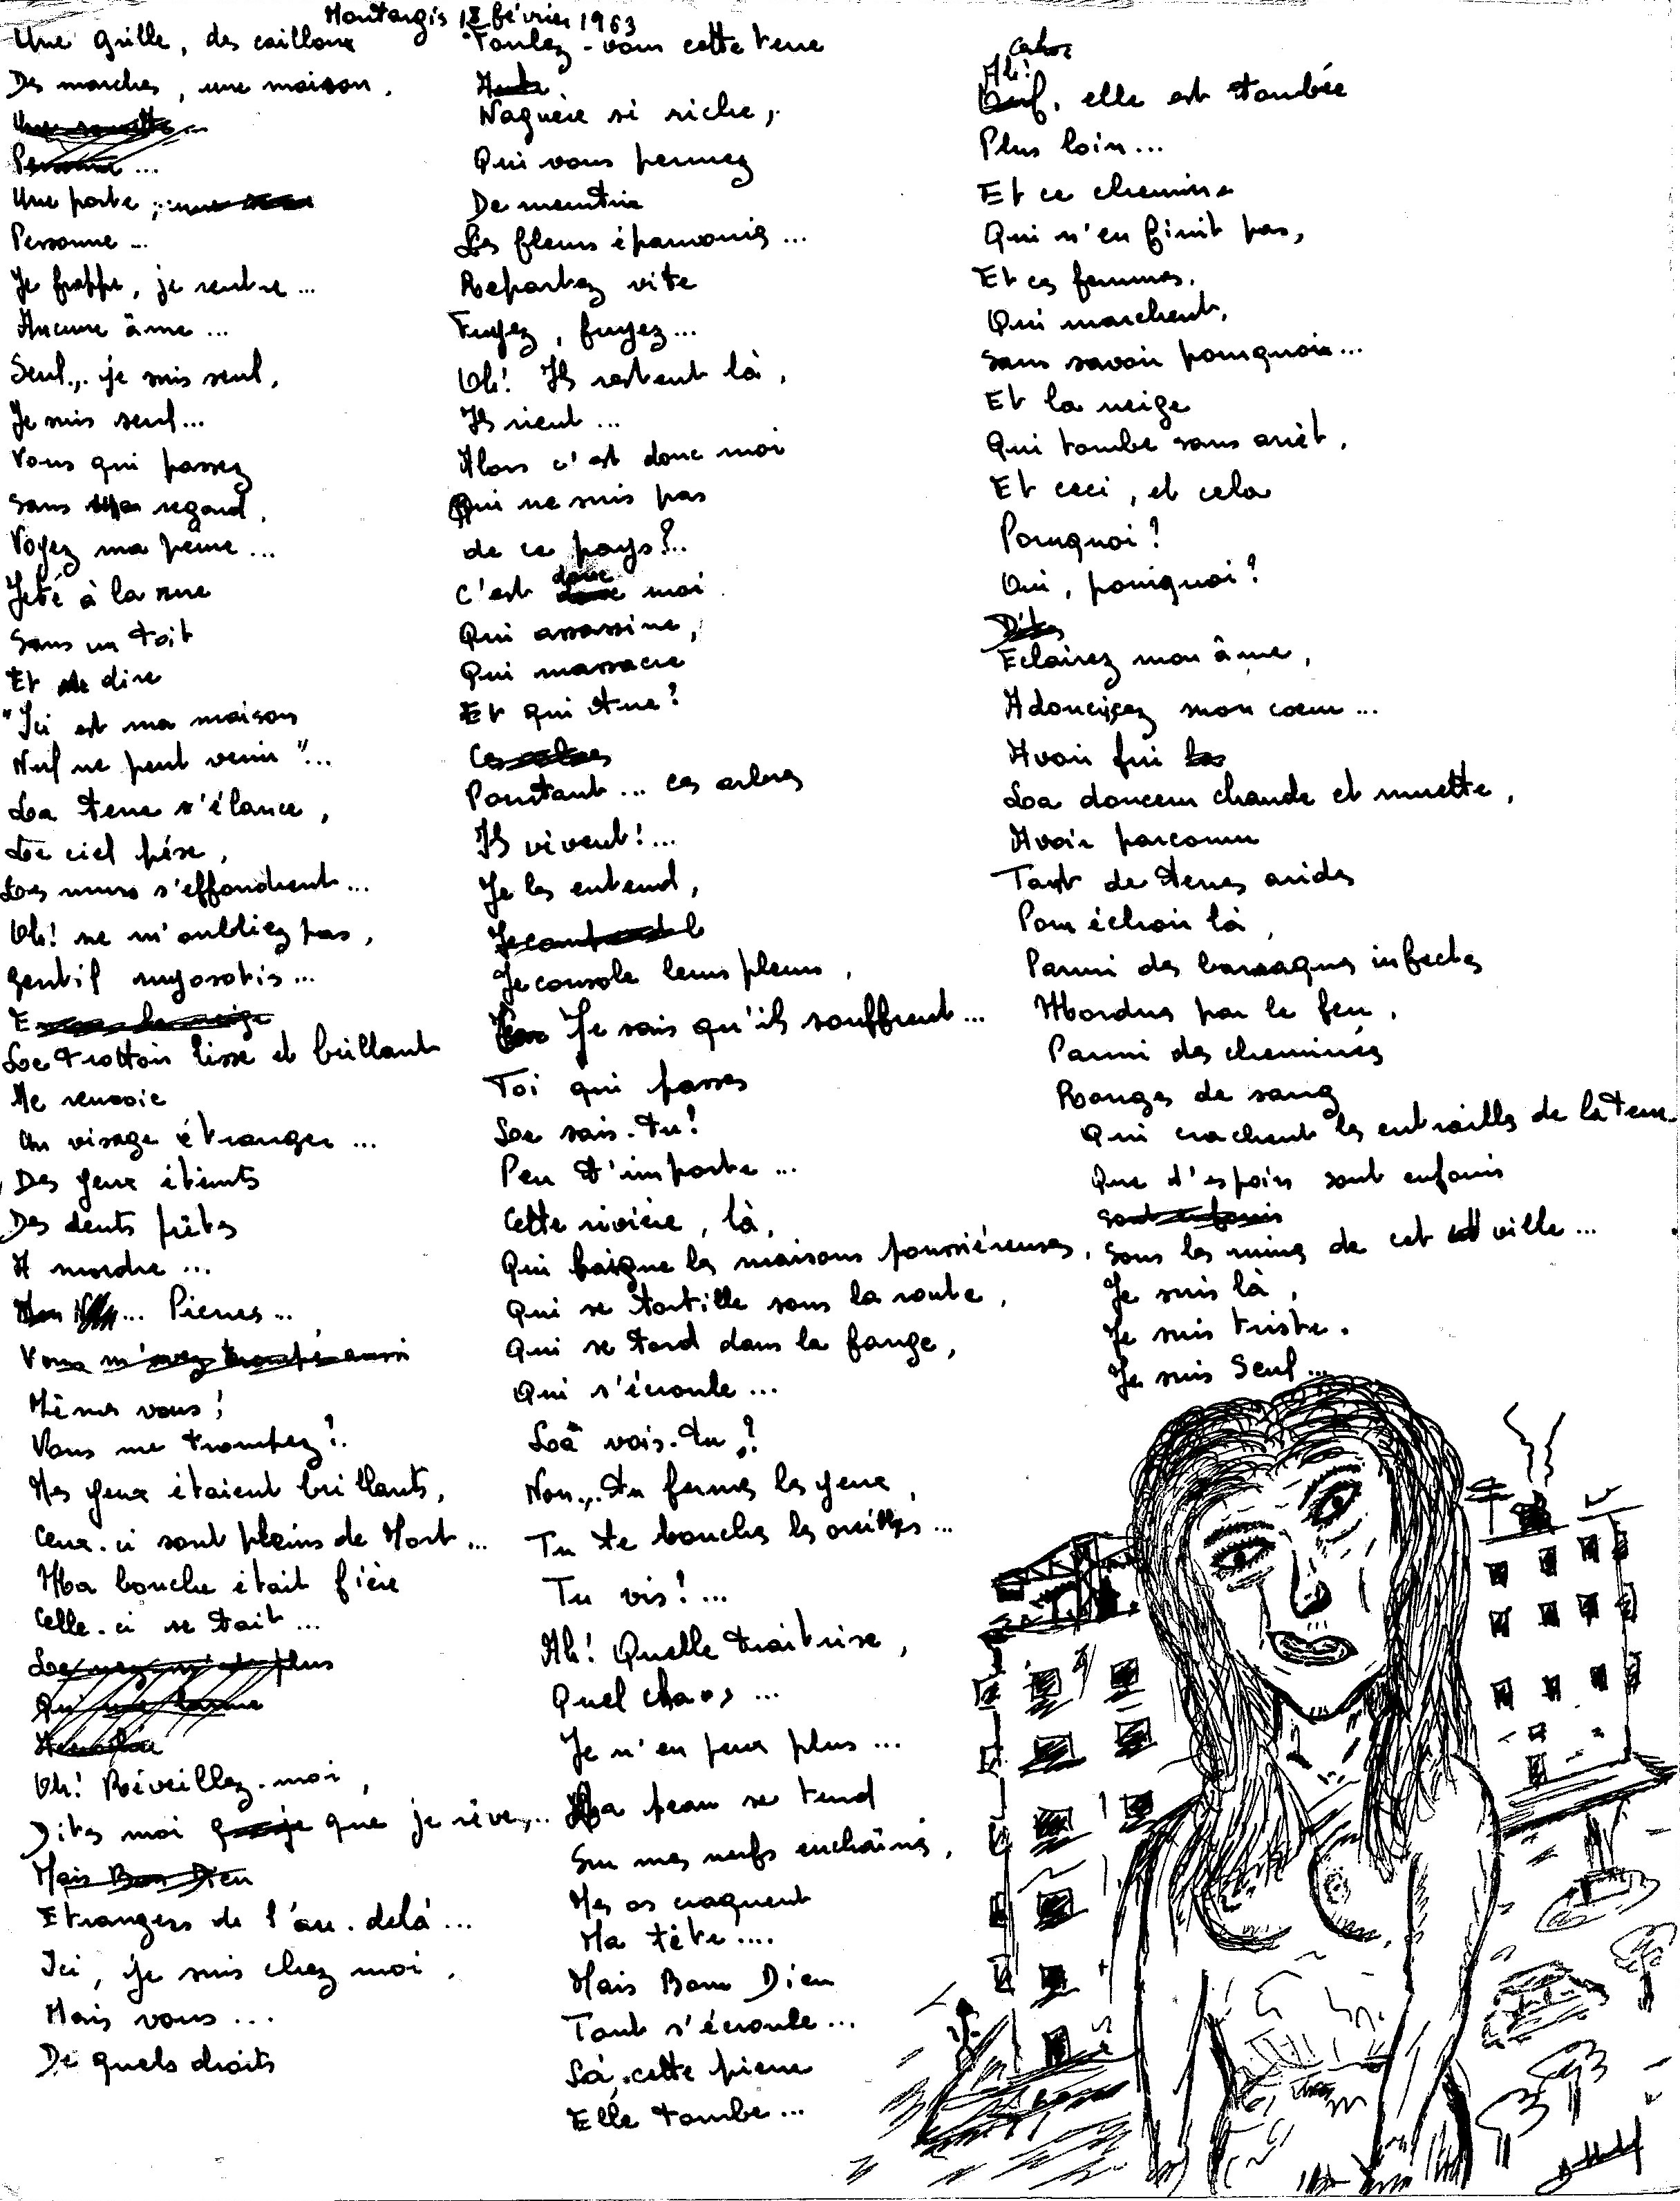 Montargis 18 février 1963
Une grille, des cailloux
Des marches, une maison.
Une sonnette...
Personne...
Une porte,
Personne...
Je frappe, je rentre...
Aucune âme...
Seul... je suis seul,
Je suis seul...
Vous qui passez
Sans regard,
Voyez ma peine...
Jeté à la rue
Sans un toit
Et dire
"Ici est ma maison
Nul ne peut venir"...
La terre s'élance,
Le ciel pèse,
Les murs s'effondrent...
Oh! ne m'oubliez pas,
Gentil myosotis...
Le trottoir lisse et brillant
Me renvoie
Un visage étranger...
Des yeux éteints
Des dents prêtes
A mordre...
Pierres...
Vous m'avez trompé aussi
Mêmes vous!
Vous me trompez!.
Mes yeux étaient brillants,
Ceux-ci sont pleins de Mort...
Ma bouche était fière
Celle-ci se tait...
Oh! Réveillez-moi,
Dites moi que je rêve,...
Mais Bon Dieu
Etrangers de l'au-delà...
Ici, je suis chez moi,
Mais vous...
De quels droits
Foulez-vous cette terre
Naguère si riche,
Qui vous permez
De meurtrir
Les fleurs épanouies...
Repartez vite
Fuyez, fuyez...
Oh! Ils restent là,
Ils rient...
Alors c'est donc moi
Qui ne suis pas
de ce pays?..
C'est donc moi
Qui assassine,
Qui massacre
Et qui tue?
Ces arbres
Pourtant... ces arbres
Ils vivent!...
Je les entend,
Je comprend l
Je console leurs pleurs,
Je sais qu'ils souffrent...
Toi qui passes
Le sais-tu!
Peu t'importe...
Cette rivière, là,
Qui baigne les maisons poussiéreuses,
Qui se tortille sous la route,
Qui se tord dans la fange,
Qui s'écroule...
La vois-tu?
Non... tu fermes les yeux,
Tu te bouches les oreilles...
Tu vis!...
Ah! Quelle traitrise,
Quel chaos...
Je n'en peux plus...
Ma peau se tend
Sur mes nerfs enchaînés,
Mes os craquent
Ma tête....
Mais Bon Dieu
Tout s'écroule...
Là, cette pierre
Elle tombe...
Ah! elle est tombée
Plus loin...
Et ce chemin
Qui n'en finit pas,
Et ces femmes,
Qui marchent,
Sans savoir pourquoi...
Et la neige
Qui tombe sans arrêt,
Et ceci, et cela
Pourquoi?
Oui, pourquoi?
Dites
Eclairez mon âme,
Adoucissez mon coeur...
Avoir fui
La douceur chaude et muette,
Avoir parcouru
Tant de terres arides
Pour échoir là,
Parmi des baraques infectes
Mordues par le feu,
Parmi des cheminées
Rouges de sang
Qui crachent les entrailles de la terre.
Que d'espoirs sont enfouis
sont enfouis
Sous les ruines de cet ville...
Je suis là,
Je suis triste.
Je suis Seul...